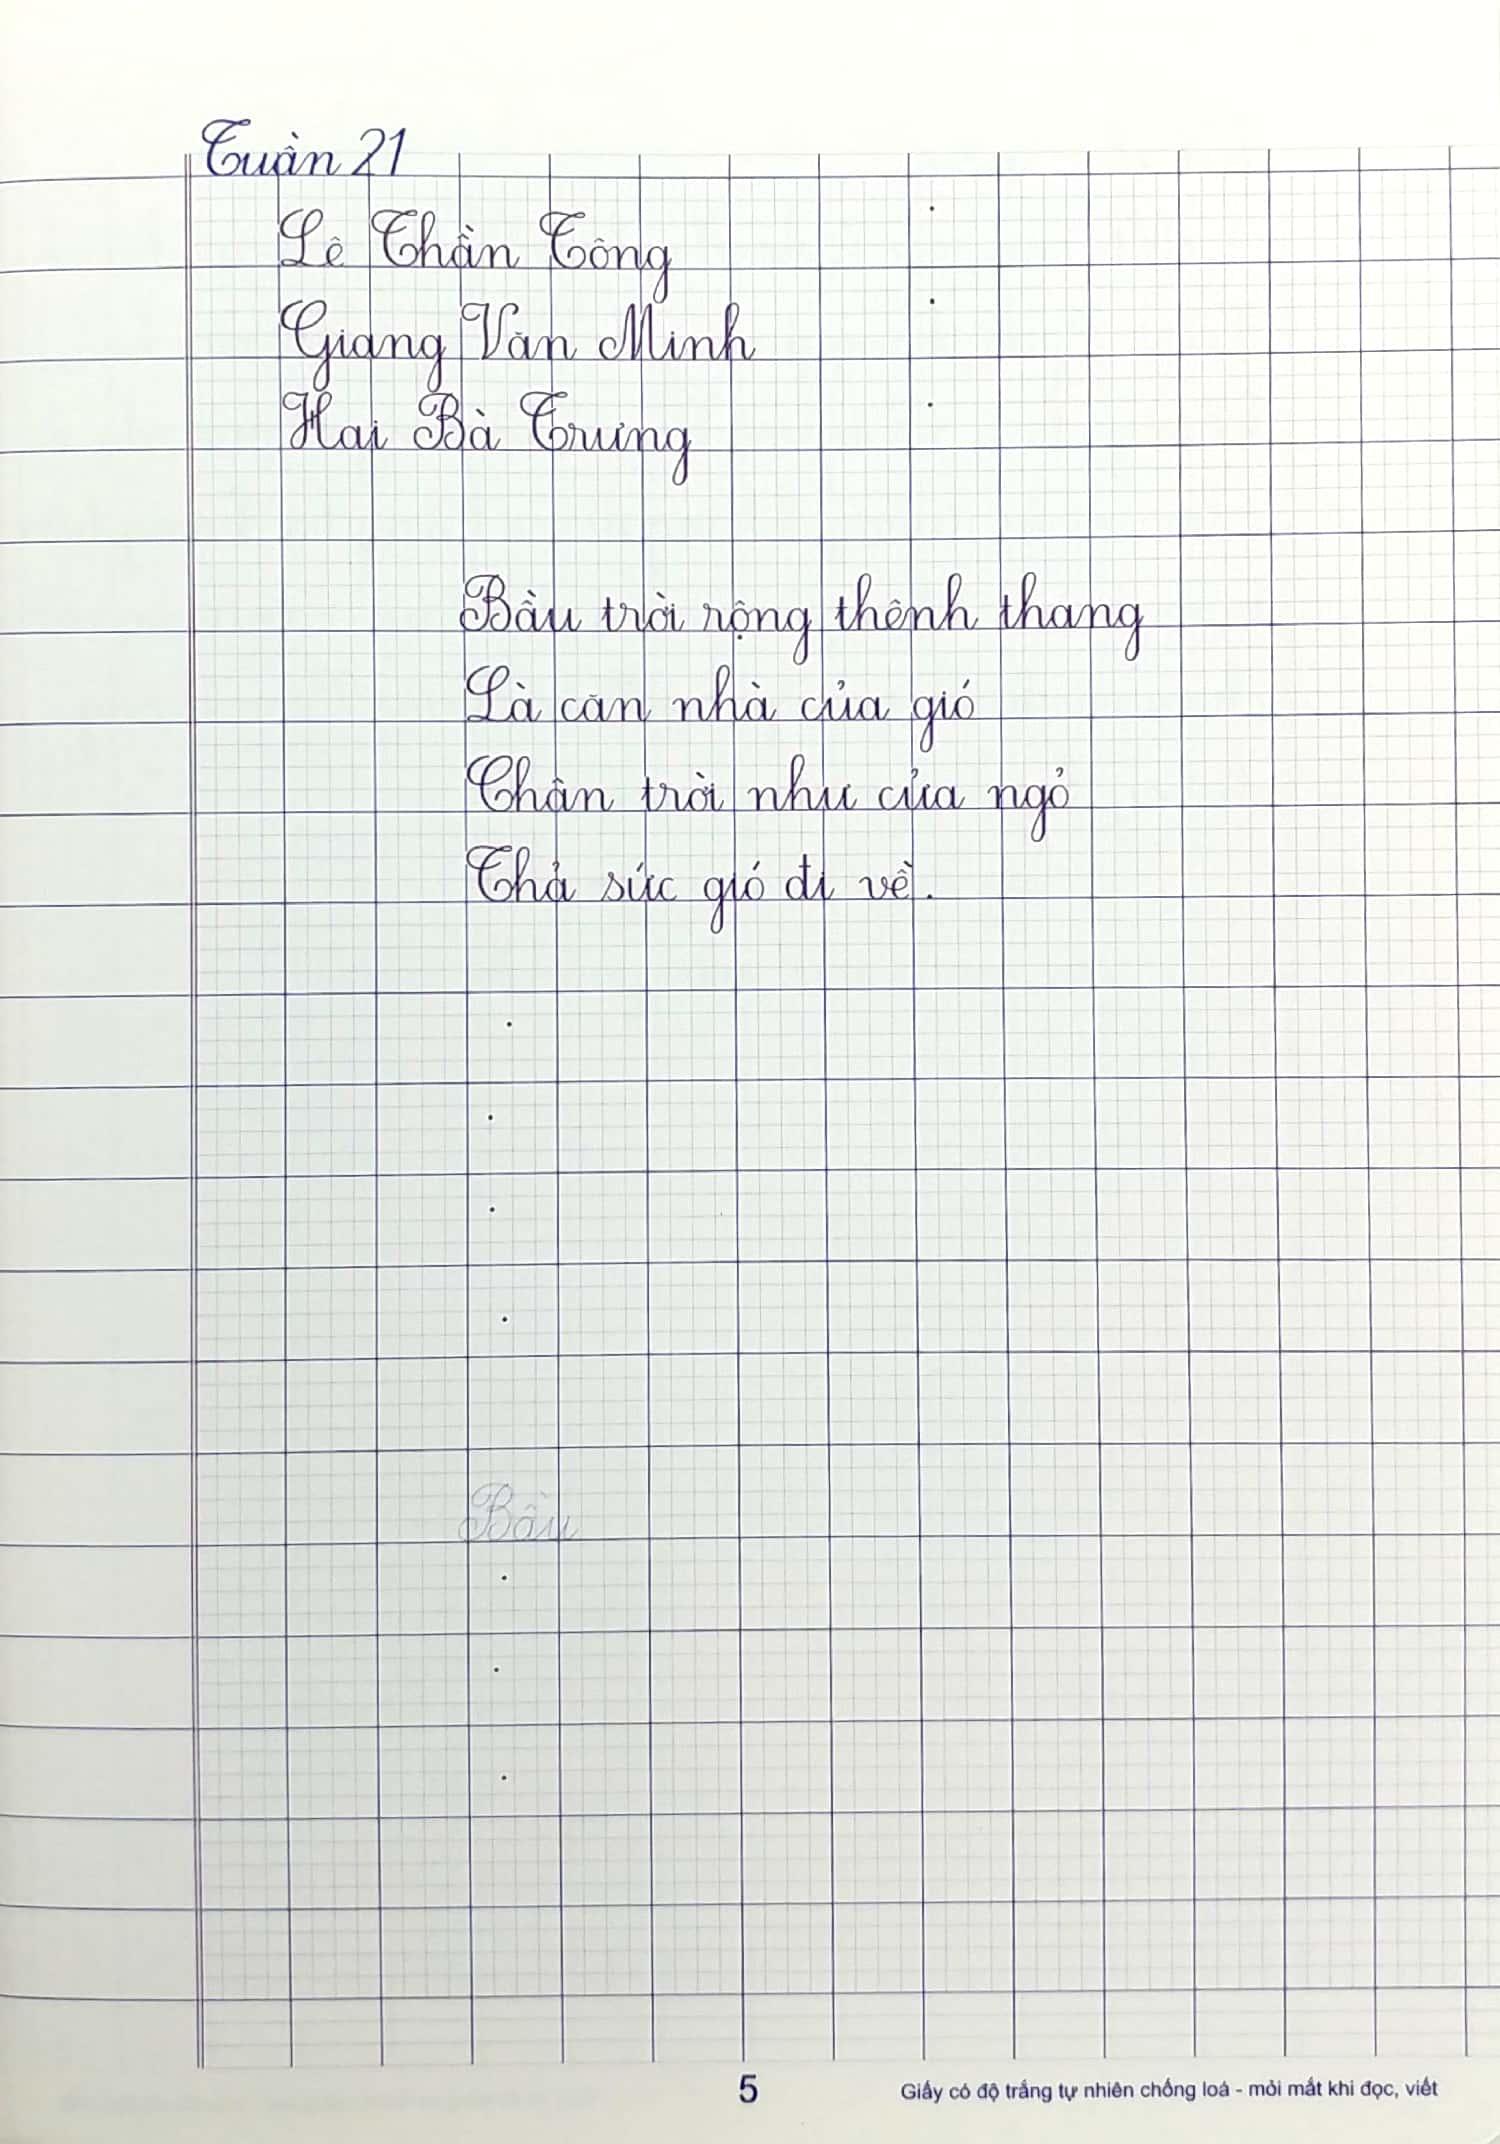 Tuần 21
Lê Thần Tông
Giang Văn Minh
Hai Bà Trưng
Bầu trời rộng thênh thang
Là căn nhà của gió
Chân trời như cửa ngỏ
Thả sức gió đi về.
Bầu
5
Giấy có độ trắng tự nhiên chống loá - mỏi mắt khi đọc, viết